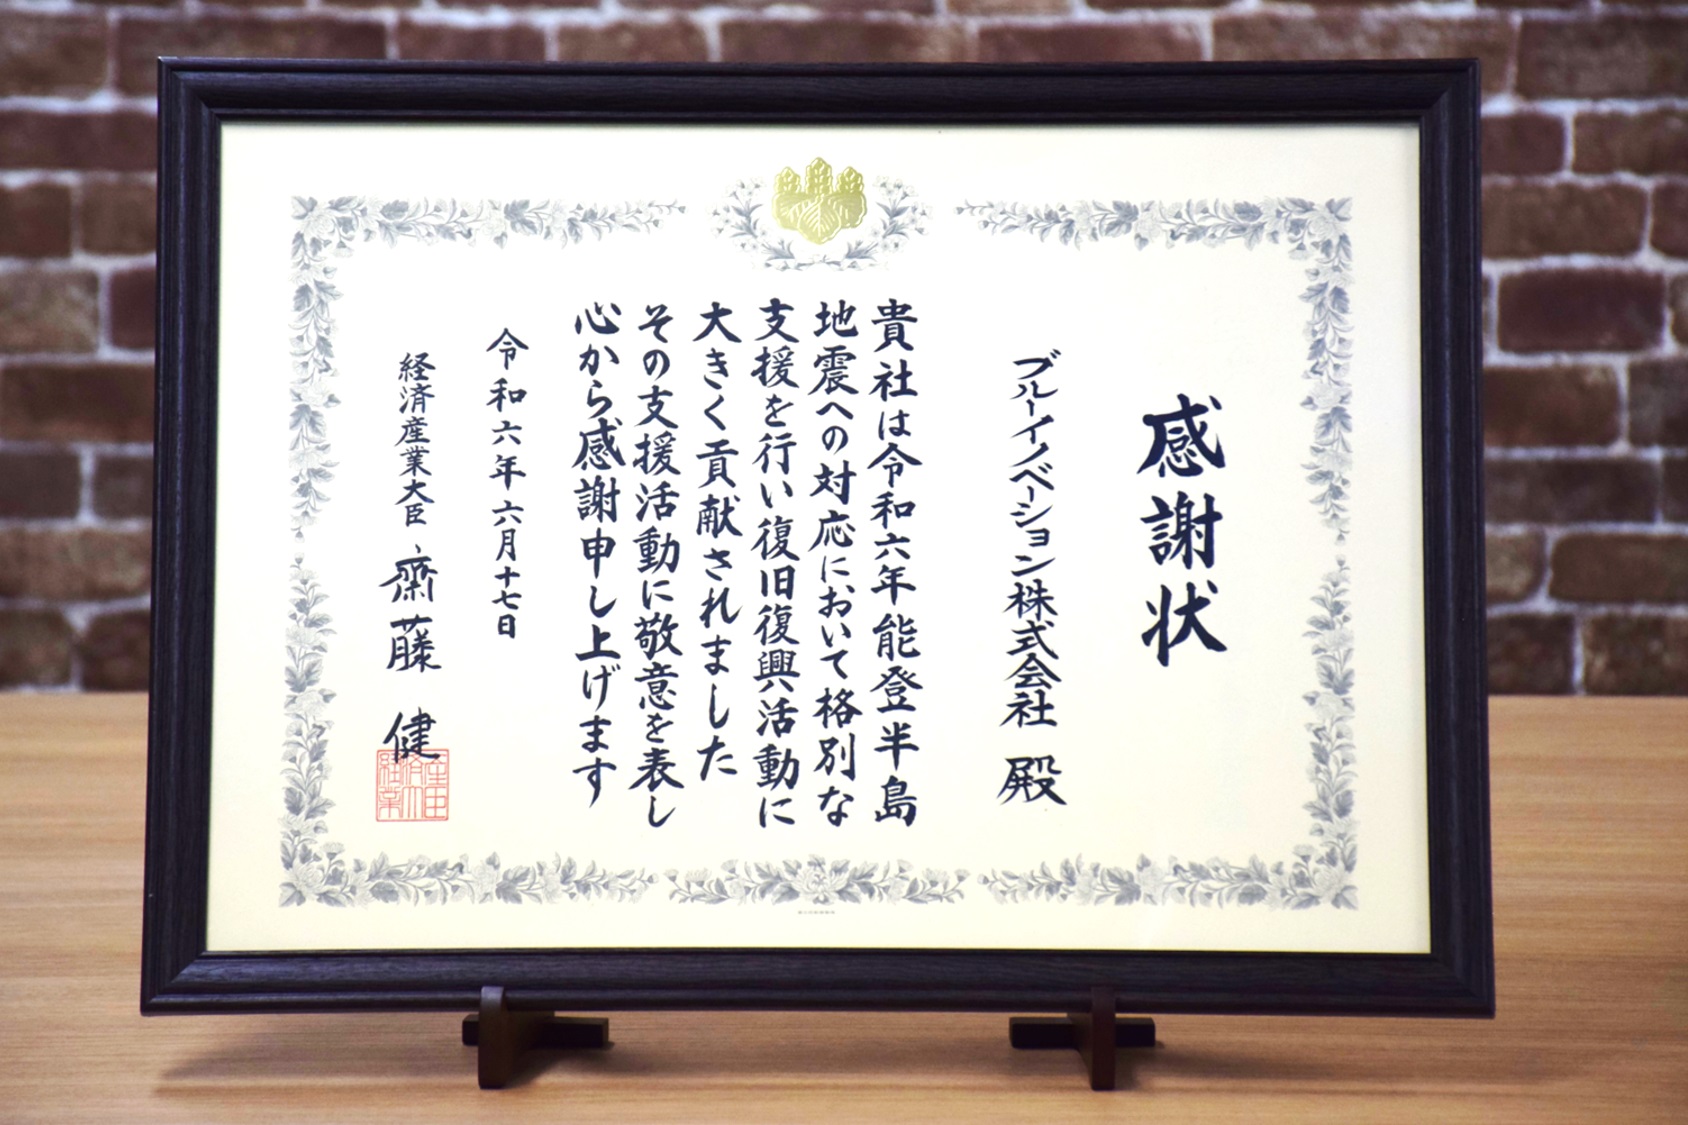 感謝状
ブルーイノベーション株式会社 殿
貴社は令和六年能登半島
地震への対応において格別な
支援を行い復旧復興活動に
大きく貢献されました
その支援活動に敬意を表し
心から感謝申し上げます
令和六年六月十七日
経済産業大臣 齋藤 健